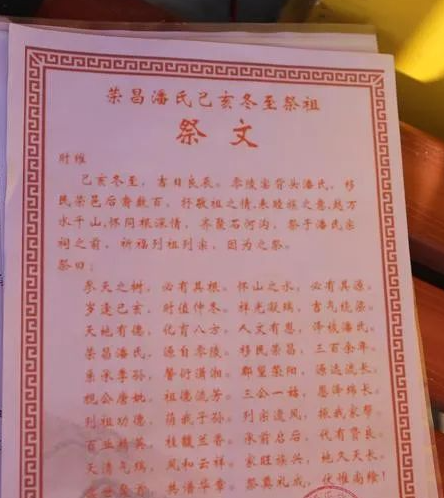 荣昌潘氏己亥冬至祭祖
祭文
时维
己亥冬至，吉日良辰。零陵富背头潘氏，移
民荣邑后裔数百，抒敬祖之情，表睦族之意，越万
水千山，怀同根深情，齐聚石河沟，祭于潘氏宗
祠之前，祈福列祖列宗，因为之祭。
祭曰：
参天之树，必有其根。怀山之水，必有其源。
岁逢己亥，时值仲冬。祥光凝瑞，吉气绕梁。
天地有德，化育八方，人文有恩，泽被潘氏。
荣昌潘氏，源自零陵。移民荣昌，三百余年。
系承季孙，誉衍潇湘。郡望荥阳，源远流长。
祖德流芳。三公一梅，恩泽绵长。
列祖功德，荫我子孙。列宗遗风，振我家帮。
百业精英，桂馥兰香。承前启后，代有贤良。
天清气瑞，风和云祥。家旺族兴，地久天长。
共谱华章。祭奠礼成，伏惟尚飨！